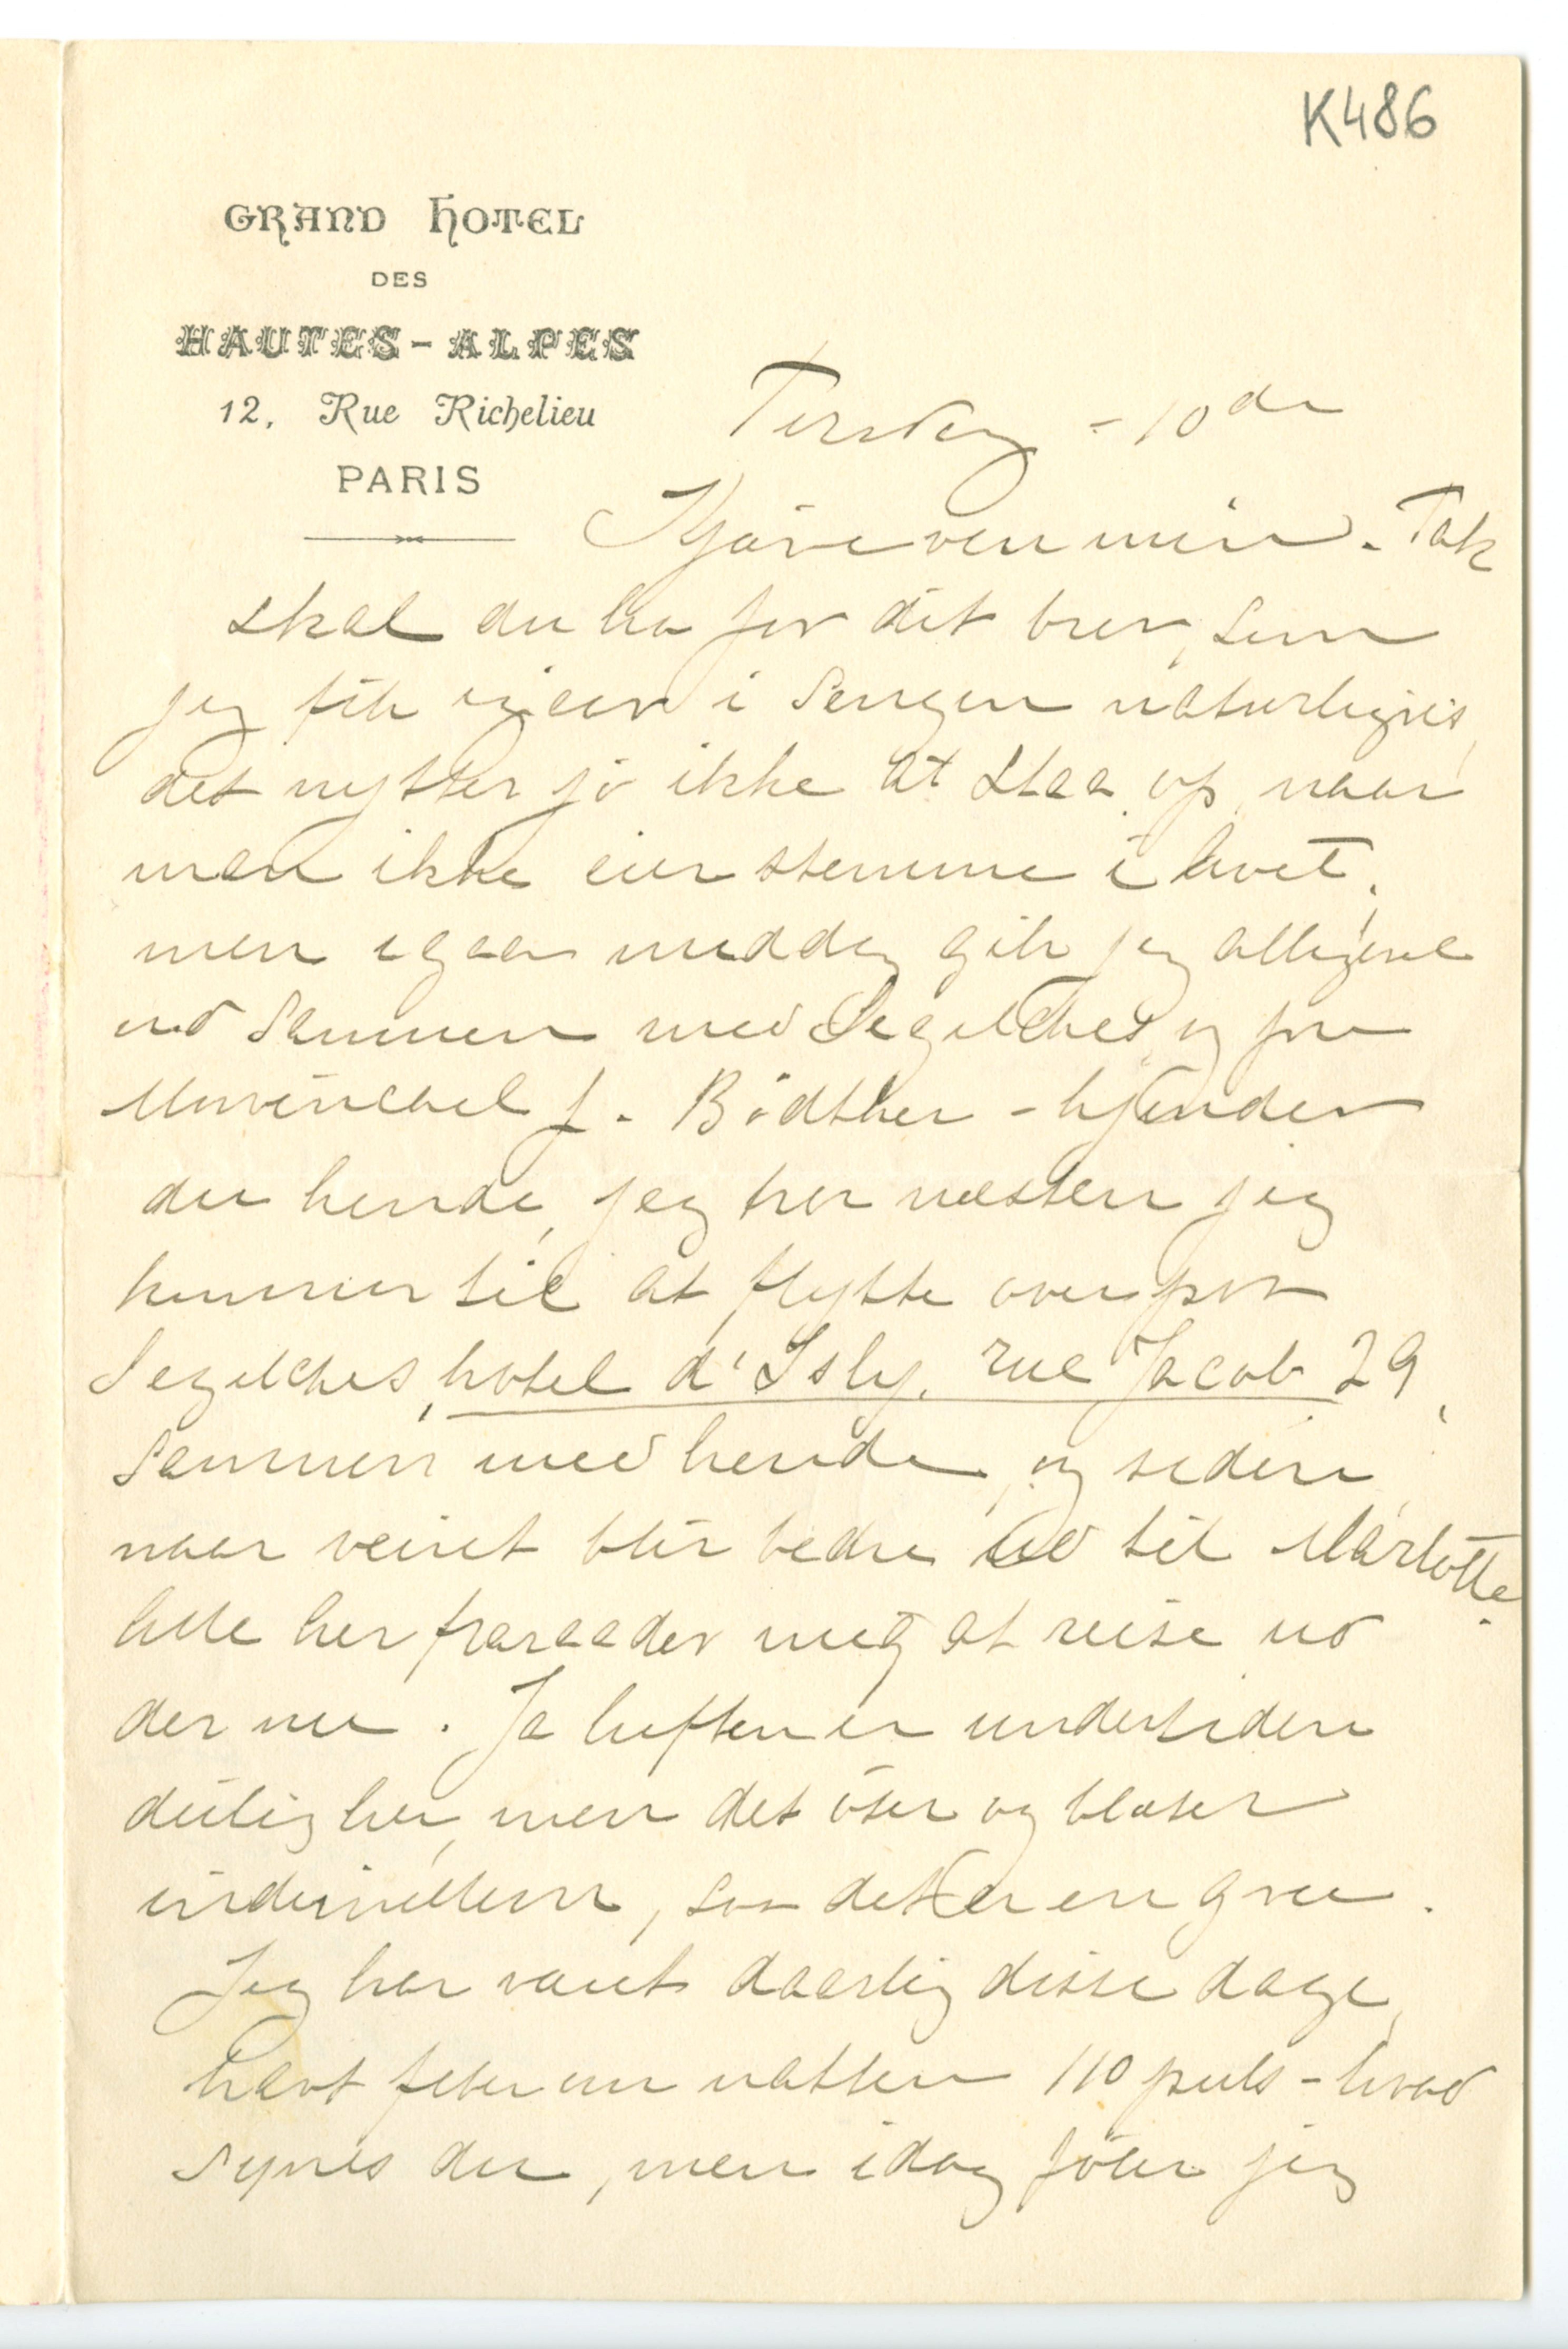 K486
GRAND HOTEL
DES
HAUTES-ALPES
12, Rue Richelieu
PARIS
Tirsdag - 10de
Kjære ven min. Tak
skal du ha for dit brev, som
jeg fik igaar i sengen naturligvis,
det nytter jo ikke at staa op, naar
man ikke eier stemme i livet,
men igaar middag gik jeg alligevel
ud sammen med Segelckes, og fru
Mowinckel f. Bødtker - kjender
du hende, jeg tror næsten jeg
kommer til at flytte over paa
Segelckes, hotel d'Isly, rue Jacob 29,
sammen med hende, og siden
naar veiret blir bedre ud til Marlotte.
Alle her fraraader mig at reise ud
der nu. Ja luften er undertiden
deilig her, men det øser og blæser
indimellem, saa det er en gru.
Jeg har været daarlig disse dage,
havt feber om natten 110 puls - hvad
synes du, men idag føler jeg